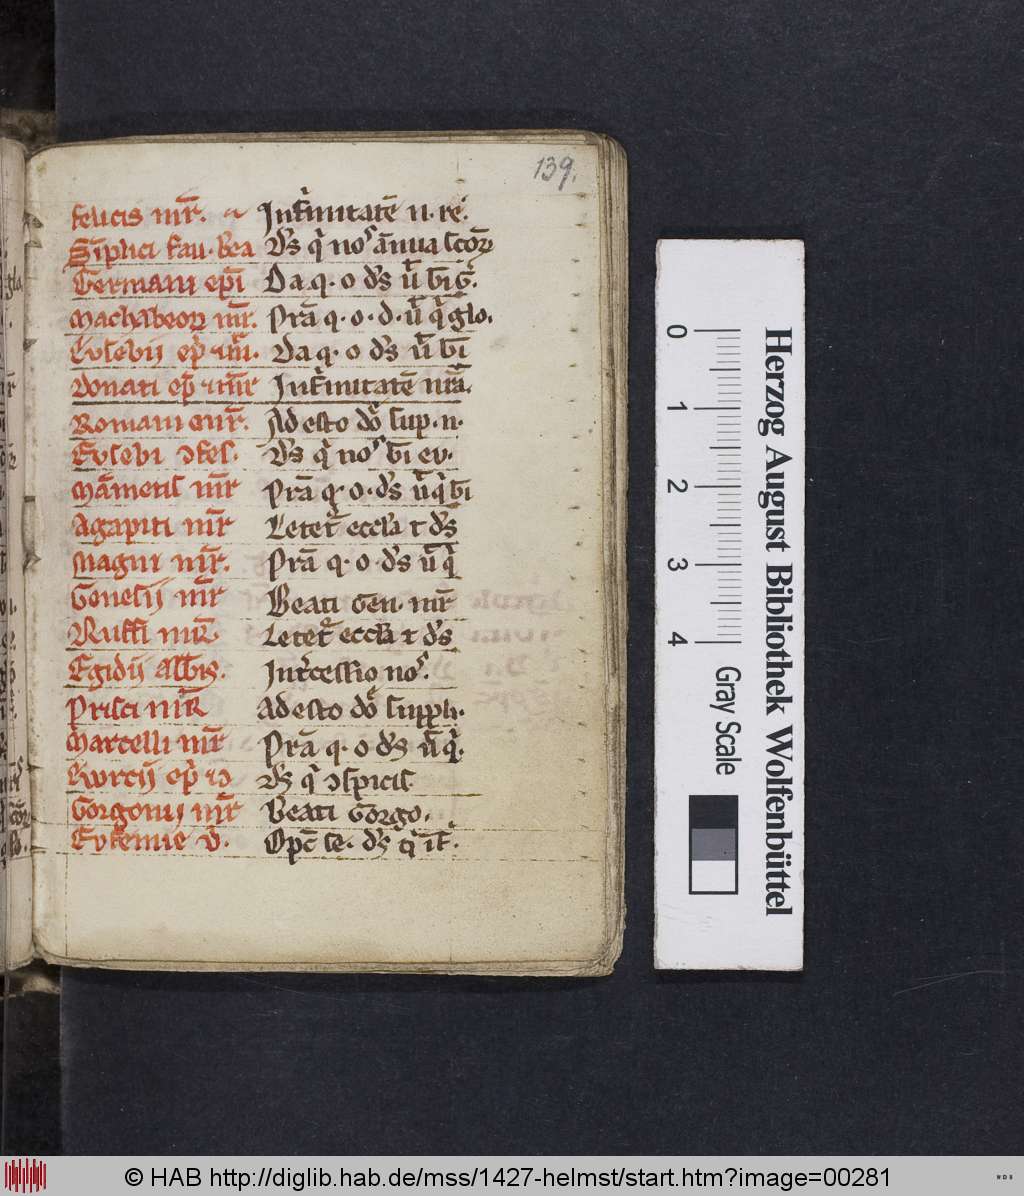 139.
felicis mr̄. Infirmitatē n. re.
Simplici fau. bea Ds q nos annua scor
Germani ep̄i Da q. o ds ut bi G.
Machabeor mr̄. Prā q. o. d. ut q glo.
Eusebii ep̄ mr̄. Da q. o ds ut bi
Donati ep̄ mr̄ Infirmitatē nrā.
Romani mr̄. Adesto do sup. n.
Eusebi ɔfes. Ds q nos bi eu.
Mametis mr̄ Prā q. o. ds ut q bi
Agapiti mr̄ Letet eccla t ds
Magni mr̄. Prā q. o ds ut q
Genesij mr̄ Beati Gen. mr̄
Ruffi mr̄. Letet eccla t ds
Egidij abbis. Intercessio nos.
Prisci mr̄ Adesto do suppli.
Marcelli mr̄ Prā q. o ds ut q.
Kurcij ep̄ Ds q ɔspicis
Gorgonij mr̄ Beati Gorgo.
Eufemie v. Opc te. ds q it.
Herzog August Bibliothek Wolfenbüttel
0 1 2 3 4
Gray Scale
© HAB http://diglib.hab.de/mss/1427-helmst/start.htm?image=00281